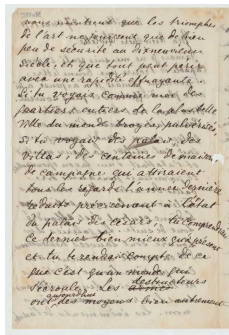 nous montrent que les triomphes
de l'art ne jouissent que de bien
peu de sécurité au dixneuvième
siècle, et que tout peut périr
avec une rapidité effrayante.
Si tu voyais comme moi des
quartiers entiers de la plus belle
ville du monde broyés, pulvérisés,
si tu voyais des palais, des
villas, des centaines de maisons
de campagne qui attiraient
tous les regards l'année dernière
à l'état
du palais des césars, tu comprendrais
ce dernier bien mieux qu'à présent
et tu te rendrais compte de ce
que c'est qu'un monde qui
s'écroule. Les destructeurs
aujourd'hui
ont des moyens bien autrement